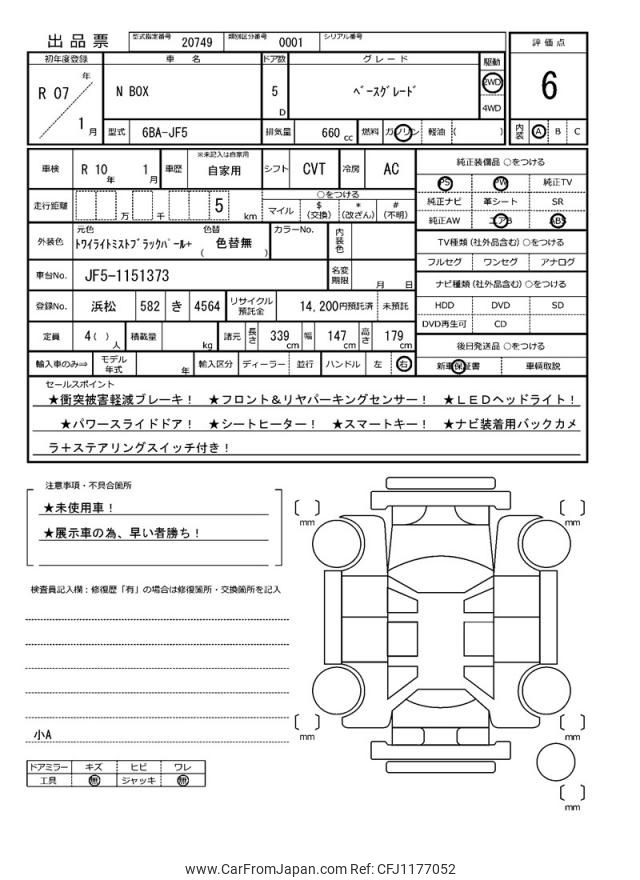 出品票 型式指定番号 20749 類別区分番号 0001 シリアル番号
評価点
6
内装 A B C
初年度登録 車名 ドア数 グレード 駆動
R 07 年 1 月 N BOX 5 D ﾍﾞｰｽｸﾞﾚｰﾄﾞ 2WD 4WD
型式 6BA-JF5 排気量 660 cc 燃料 ガソリン 軽油 ( )
車検 R 10 年 1 月 車歴 ※未記入は自家用 自家用 シフト CVT 冷房 AC
走行距離 万 千 5 km ○をつける
マイル $ (交換) * (改ざん) # (不明)
外装色 元色 ﾄﾜｲﾗｲﾄﾐｽﾄﾌﾞﾗｯｸﾊﾟｰﾙ+ 色替 ( 色替無 ) カラーNo. 内装色
車台No. JF5-1151373 名変期限 月 日
登録No. 浜松 582 き 4564 リサイクル預託金 14,200円預託済 未預託
定員 4( ) 人 積載量 kg 諸元 長さ 339 cm 幅 147 cm 高さ 179 cm
輸入車のみ⇒ モデル年式 年 輸入区分 ディーラー 並行 ハンドル 左 右
純正装備品 ○をつける
PS PW 純正TV
純正ナビ 革シート SR
純正AW エアB ABS
TV種類 (社外品含む) ○をつける
フルセグ ワンセグ アナログ
ナビ種類 (社外品含む) ○をつける
HDD DVD SD
DVD再生可 CD
後日発送品 ○をつける
新車保証書 車輌取説
セールスポイント
★衝突被害軽減ブレーキ！ ★フロント＆リヤパーキングセンサー！ ★ＬＥＤヘッドライト！
★パワースライドドア！ ★シートヒーター！ ★スマートキー！ ★ナビ装着用バックカメ
ラ＋ステアリングスイッチ付き！
注意事項・不具合箇所
★未使用車！
★展示車の為、早い者勝ち！
検査員記入欄：修復歴「有」の場合は修復箇所・交換箇所を記入
小A
ドアミラー キズ ヒビ ワレ
工具 無 ジャッキ 無
mm
mm
mm
mm
mm
www.CarFromJapan.com Ref: CFJ1177052